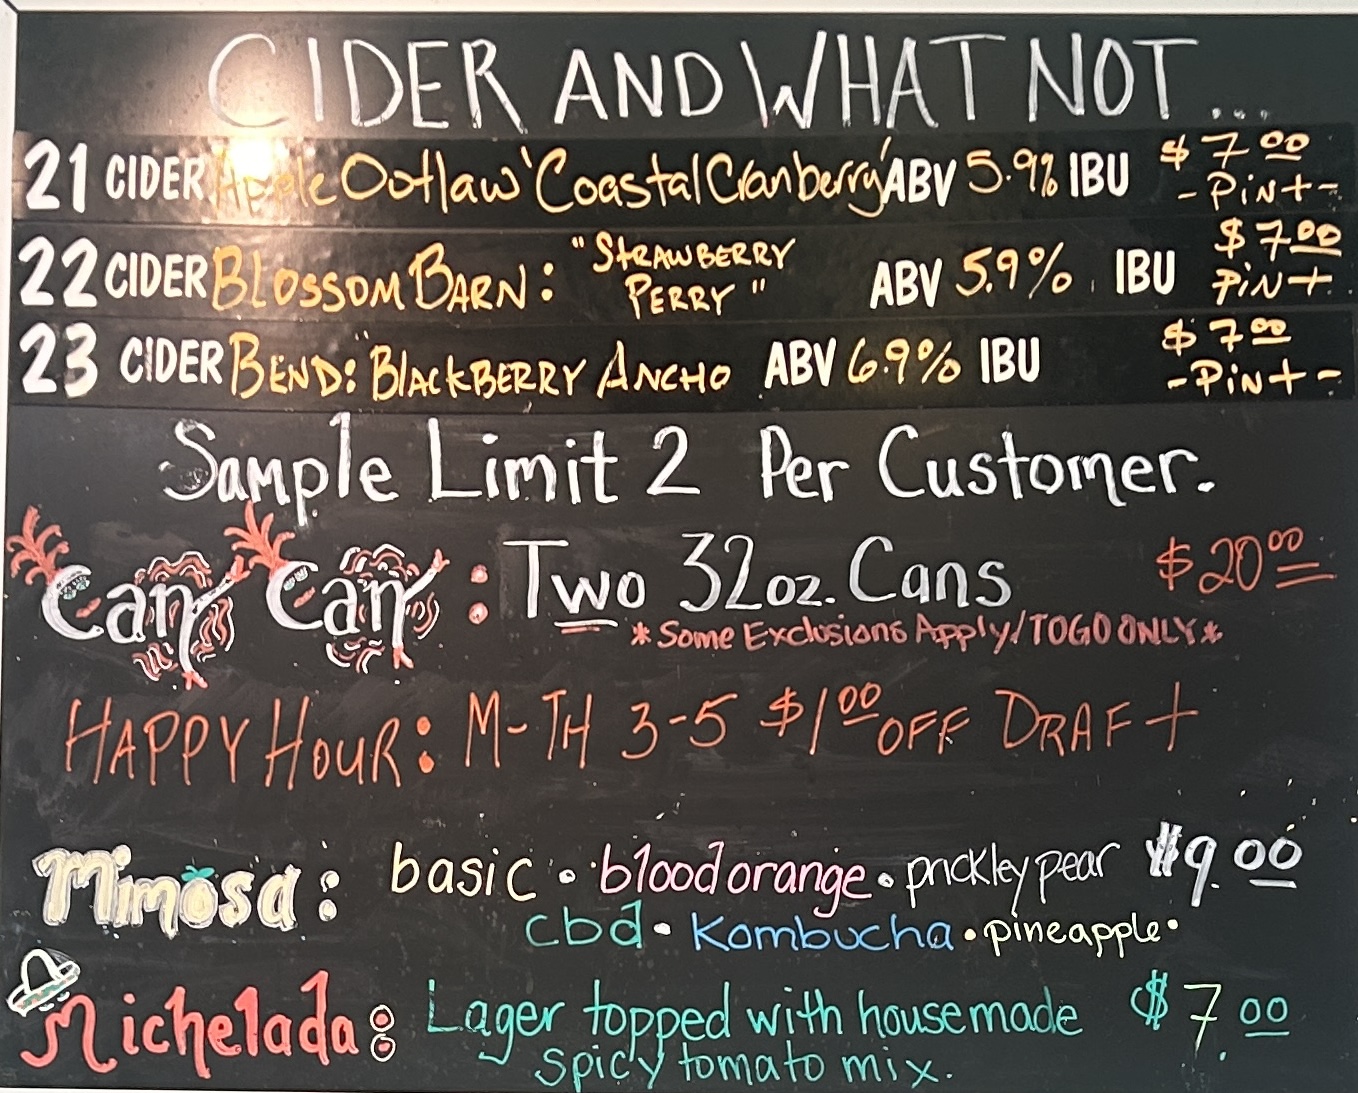 CIDER AND WHAT NOT...
21 CIDER Apple Outlaw 'Coastal Cranberry' ABV 5.9% IBU $7.00 -Pint-
22 CIDER BLOSSOM BARN: "STRAWBERRY PERRY" ABV 5.9% IBU $7.00 PiNt
23 CIDER BEND: "BLACKBERRY ANCHO ABV 6.9% IBU $7.00 -PiNt-
Sample Limit 2 Per Customer.
Can Can: Two 32oz. Cans $20.00
*Some Exclusions Apply/TOGO ONLY*
HAPPY HOUR: M-TH 3-5 $1.00 OFF DRAFT
Mimosa: basic • blood orange • prickly pear $9.00
cbd • Kombucha • pineapple •
Michelada: Lager topped with housemade $7.00
spicy tomato mix.